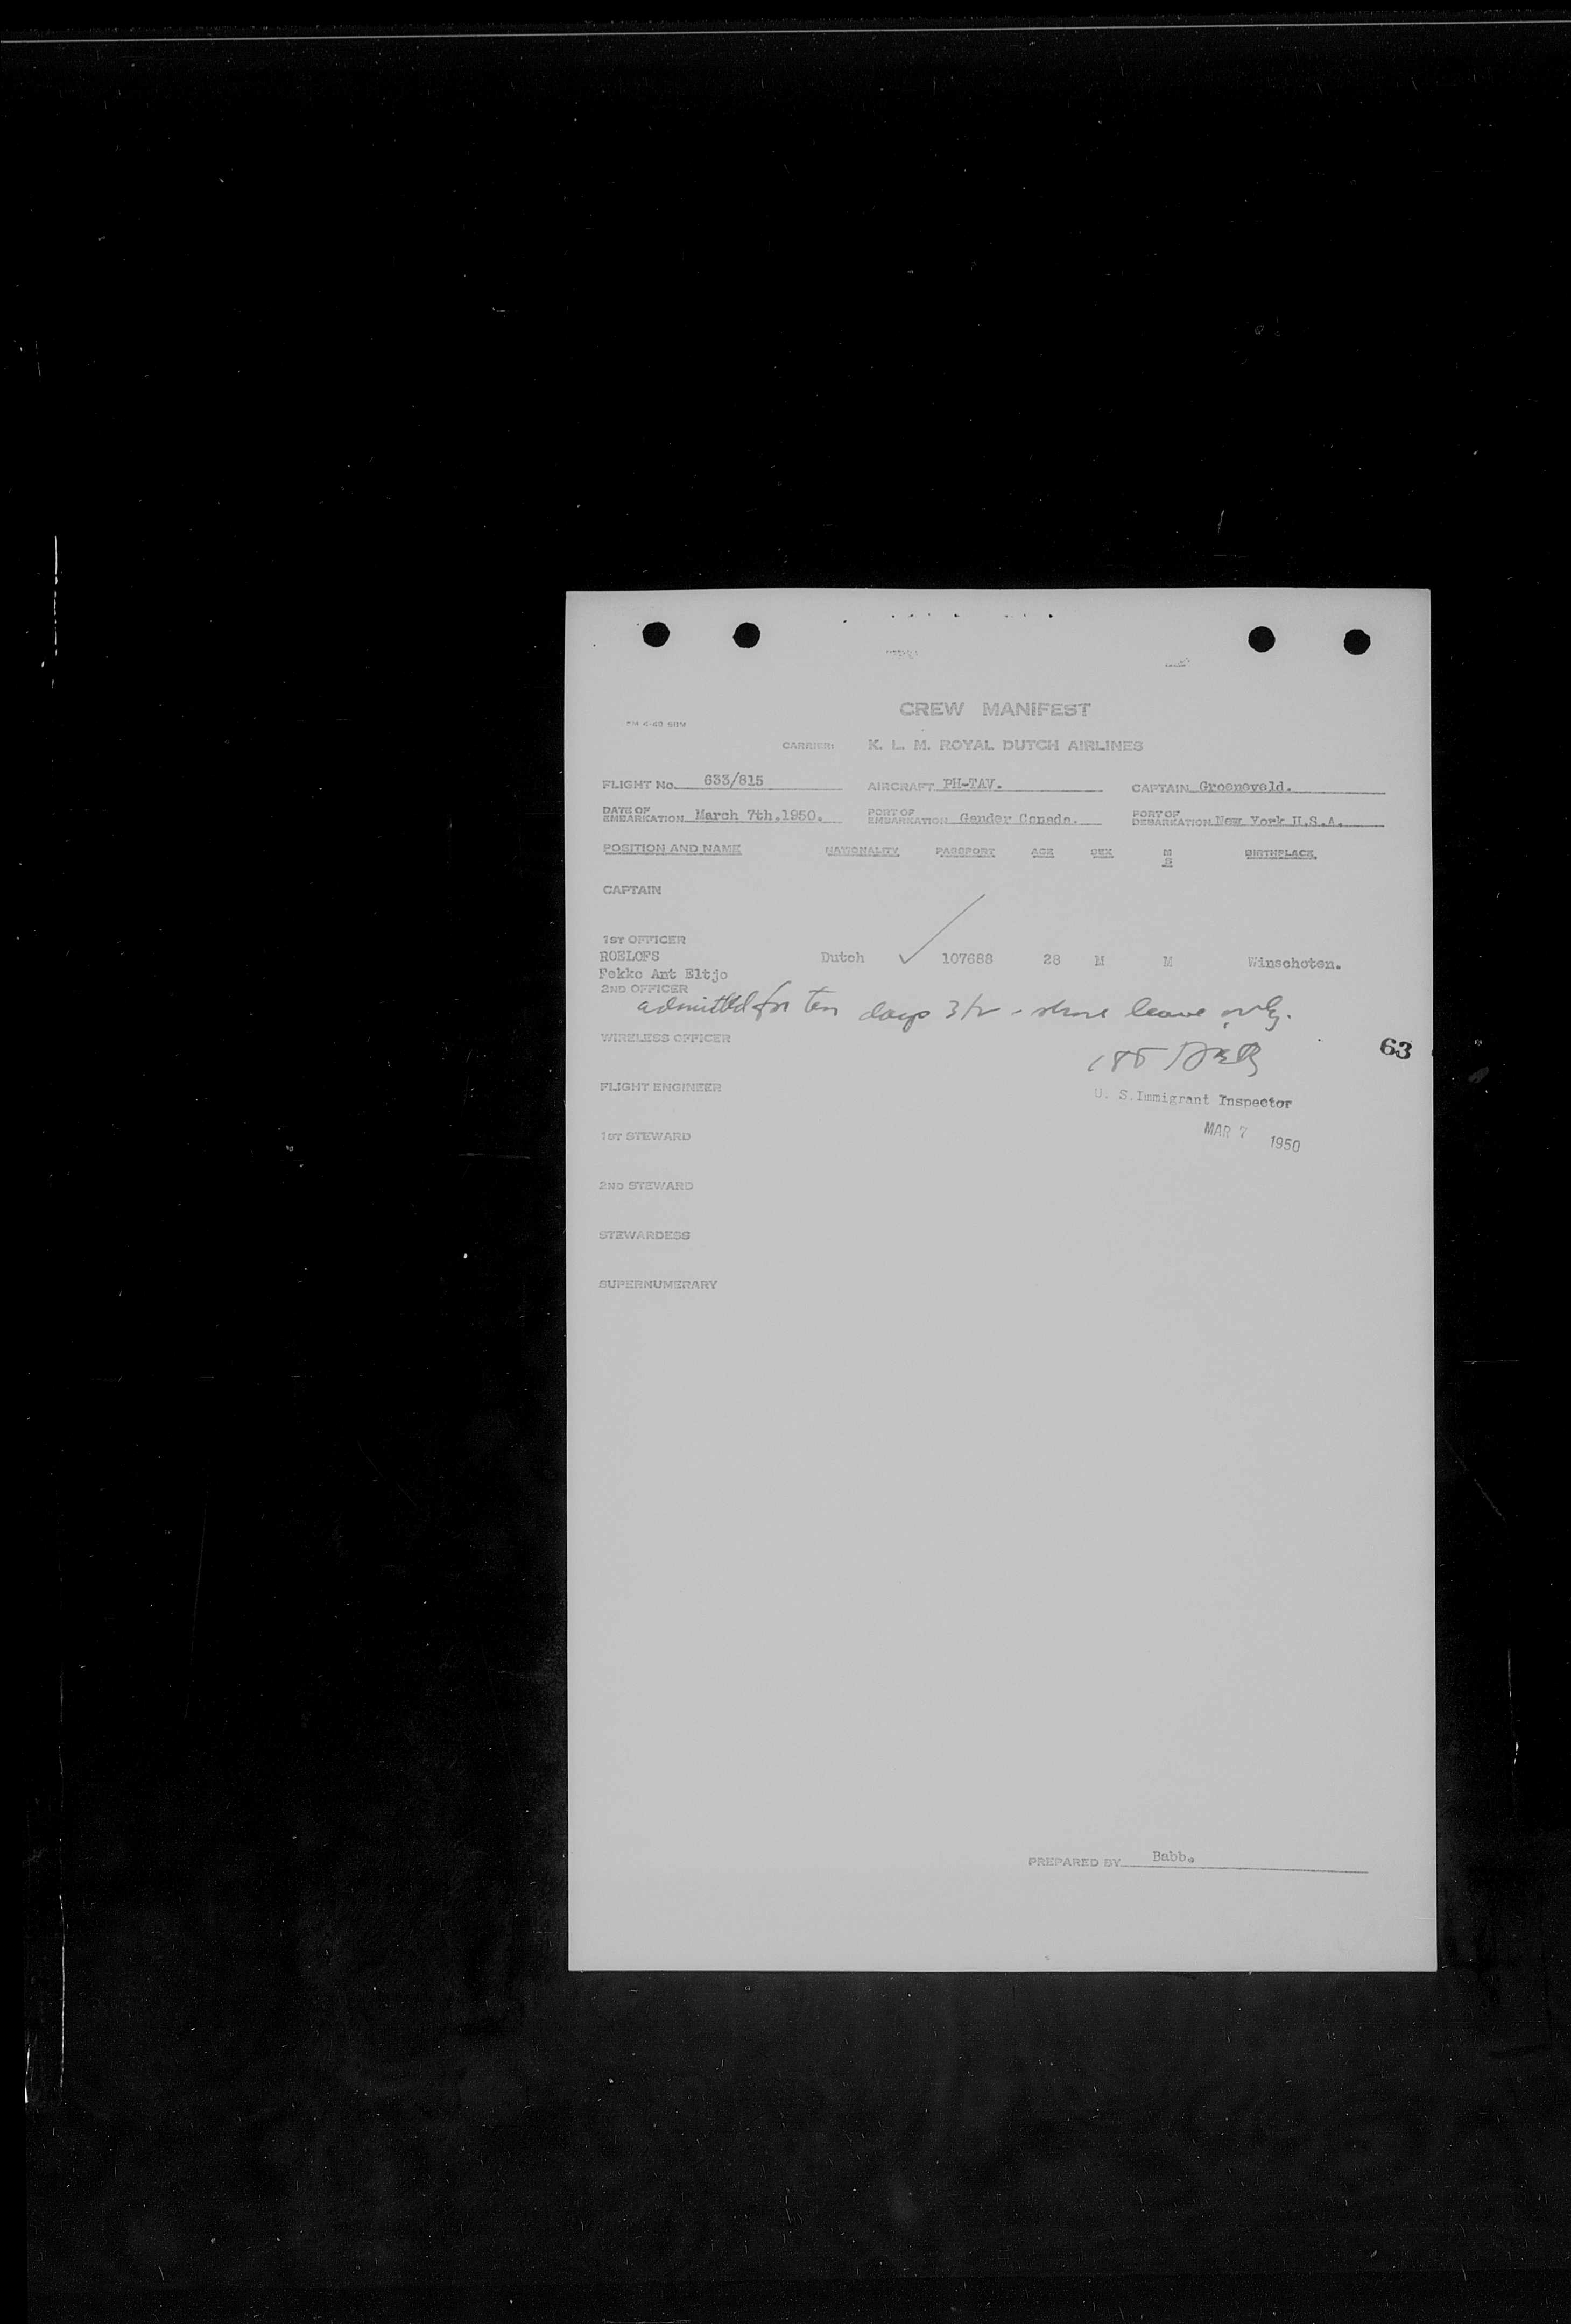 CREW MANIFEST
FM 4-49 60M
CARRIER: K. L. M. ROYAL DUTCH AIRLINES
FLIGHT No. 633/815 AIRCRAFT PH-TAV. CAPTAIN Groeneveld.
DATE OF EMBARKATION March 7th.1950. PORT OF EMBARKATION Gander Canada. PORT OF DEBARKATION New York U.S.A.
POSITION AND NAME NATIONALITY PASSPORT AGE SEX M S BIRTHPLACE
CAPTAIN
1ST OFFICER
ROELOFS Dutch 107688 28 M M Winschoten.
Fekko Ant Eltjo
2ND OFFICER
admitted for ten days 3/2 - shore leave only.
WIRELESS OFFICER
63
FLIGHT ENGINEER
U. S. Immigrant Inspector
1ST STEWARD
MAR 7 1950
2ND STEWARD
STEWARDESS
SUPERNUMERARY
PREPARED BY Babb.